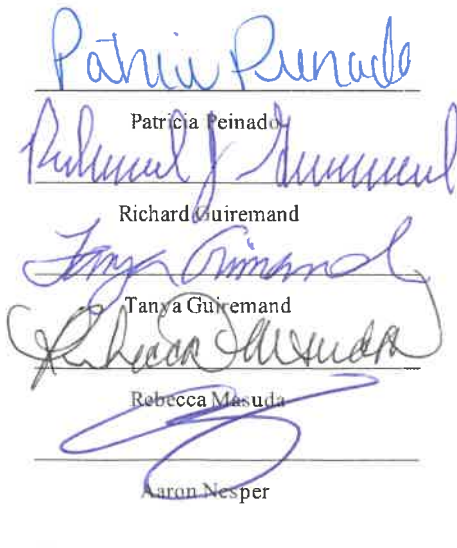 Patricia Peinado
Patricia Peinado
Richard J Guiremand
Richard Guiremand
Tanya Guiremand
Tanya Guiremand
Rebecca Masuda
Rebecca Masuda
Aaron Nesper